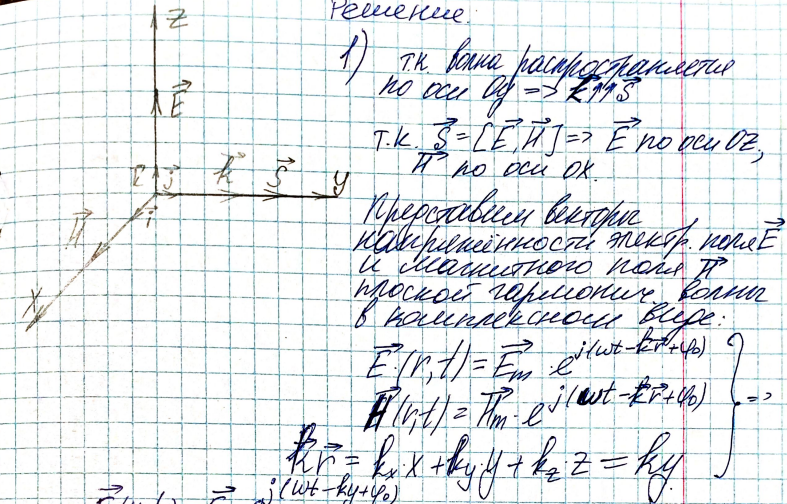 Решение.
1) т.к. волна распространяется
по оси Oy => k⃗↑↑S⃗
т.к. S⃗ = [E⃗, H⃗] => E⃗ по оси OZ,
H⃗ по оси OX.
Представим векторы
напряжённости электр. поля E⃗
и магнитного поля H⃗
плоской гармонич. волны
в комплексном виде:
E⃗(r,t) = E⃗m · e^j(ωt-k⃗r⃗+φ₀)
H⃗(r,t) = H⃗m · e^j(ωt-k⃗r⃗+φ₀) } =>
k⃗r⃗ = kₓx + k_y y + k_z z = ky
Z
E⃗
k⃗ j⃗ k⃗ S⃗ y
i⃗
H⃗
X
j(ωt-ky+φ₀)